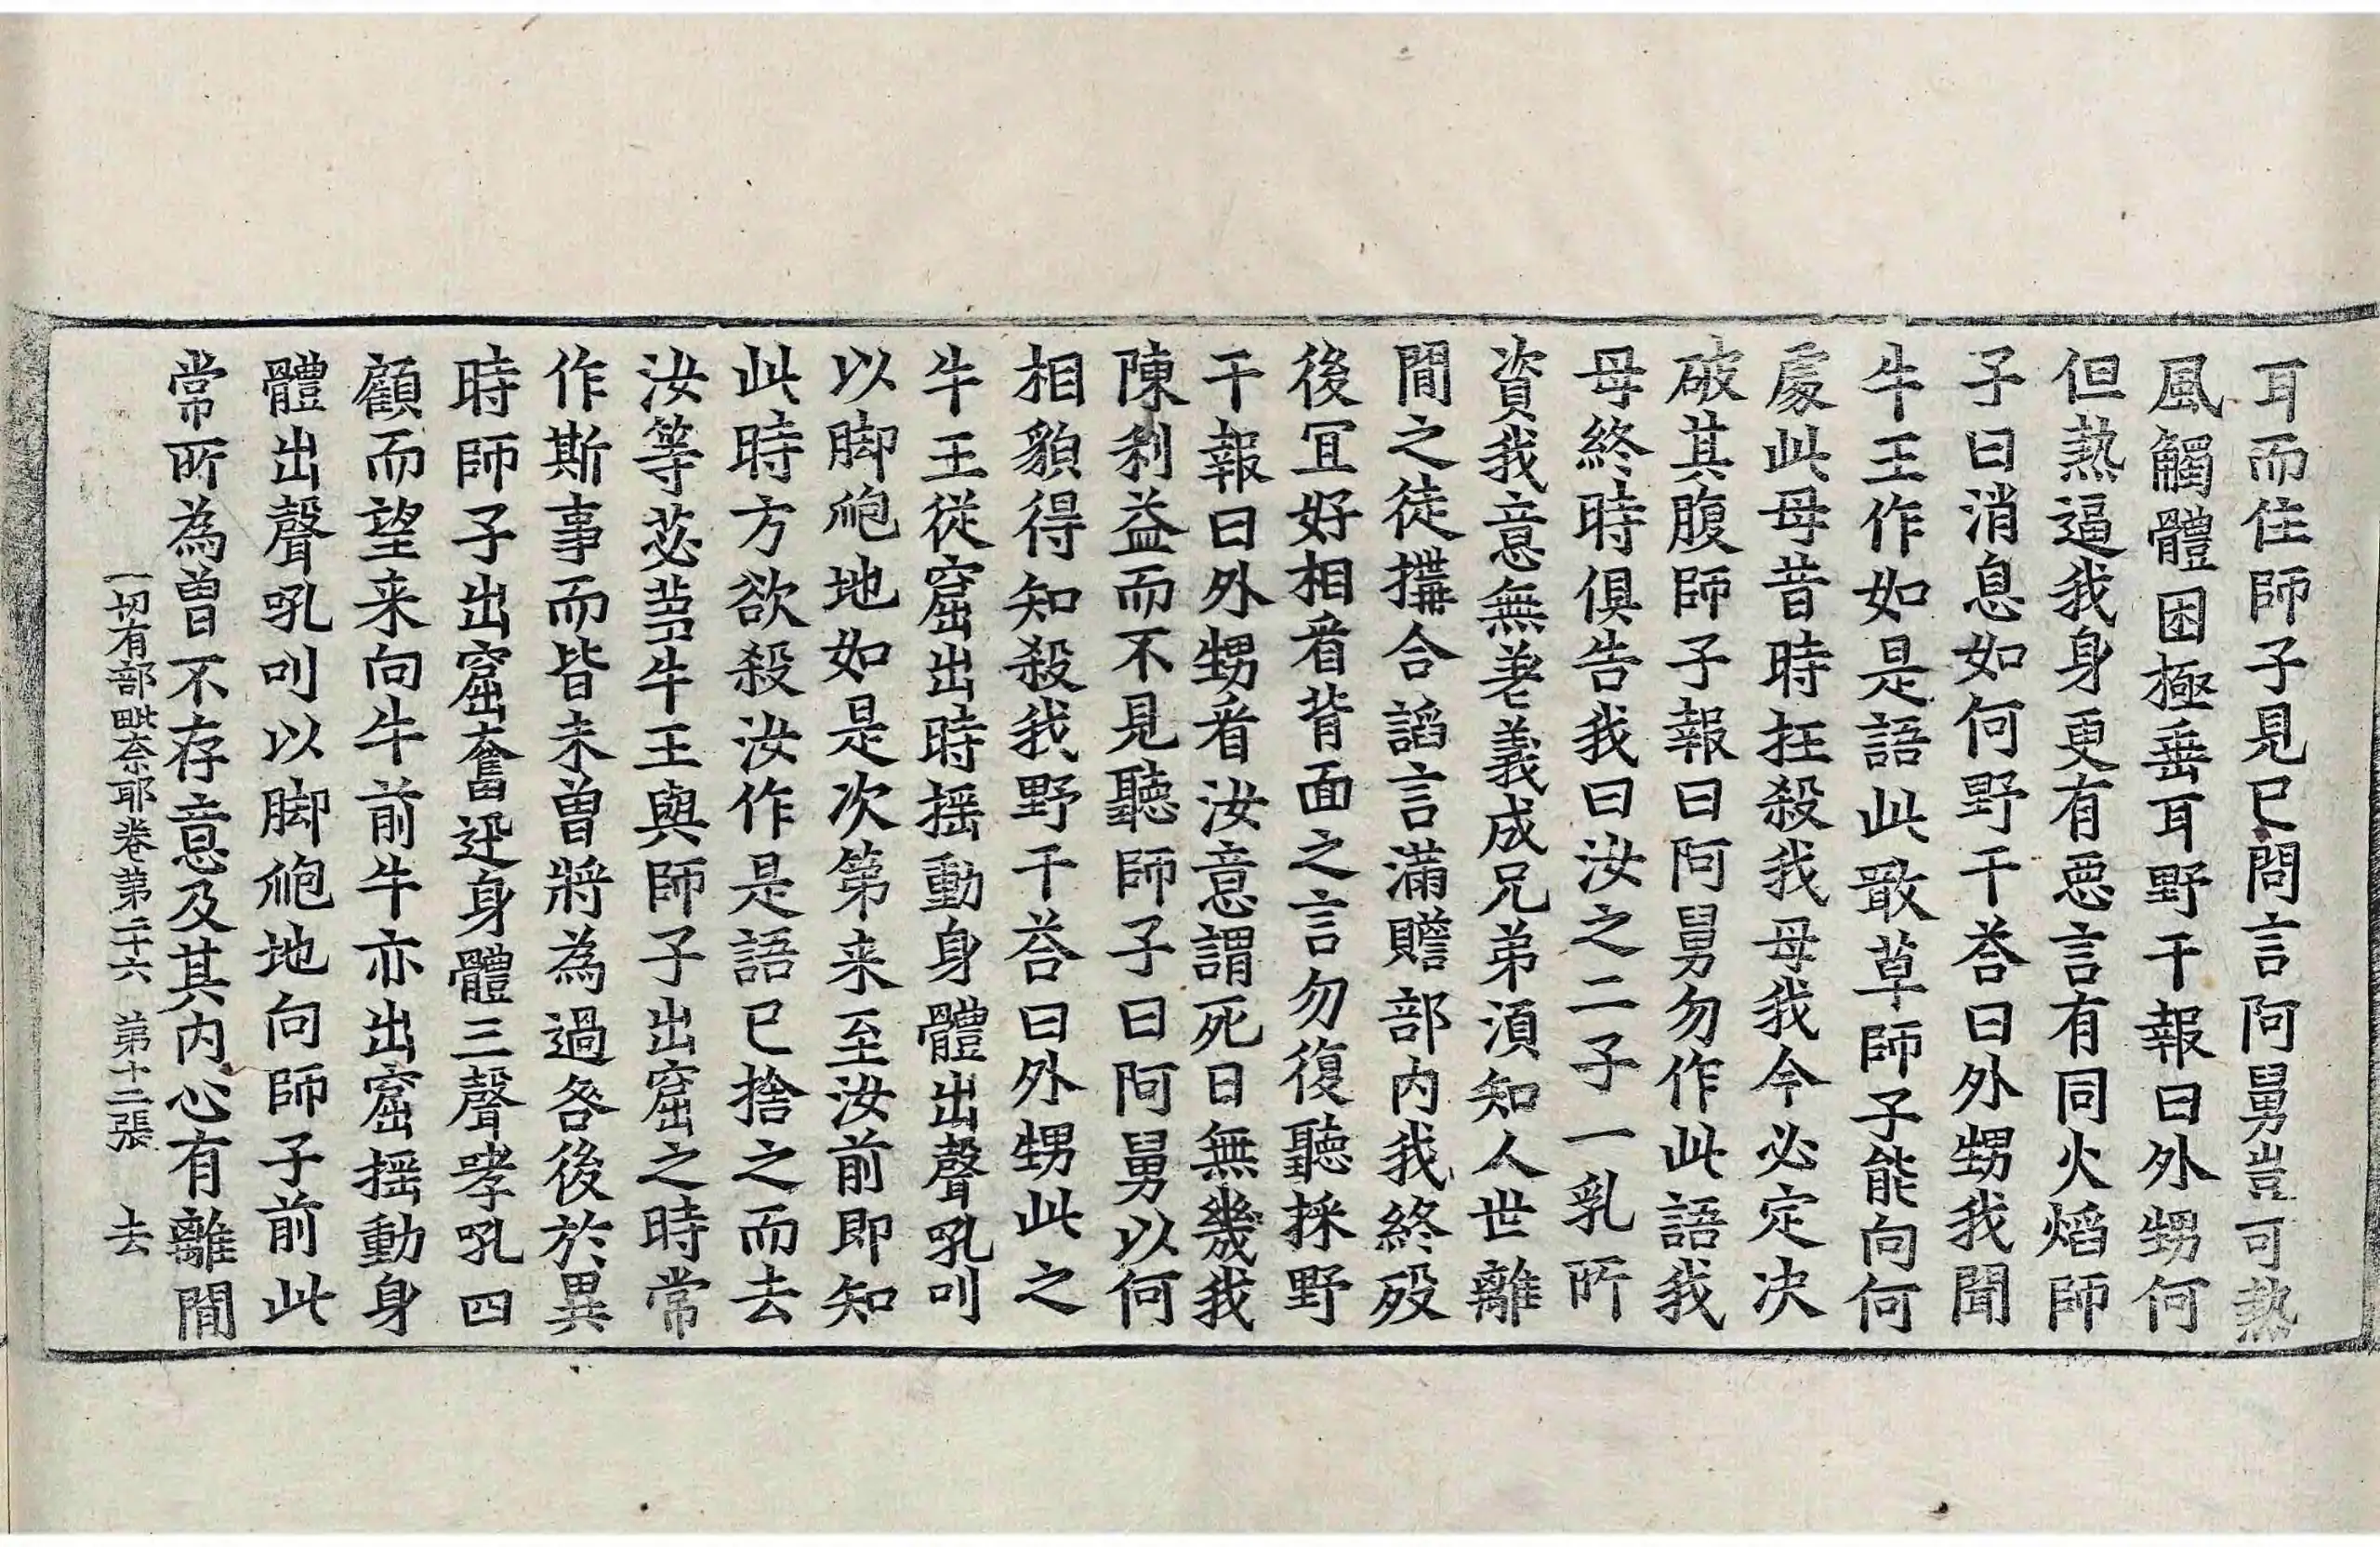 耳而住師子見已問言阿舅豈可熱
風觸體困極垂耳野干報曰外甥何
但熱逼我身更有惡言有同火焰師
子曰消息如何野干荅曰外甥我聞
牛王作如是語此噉草師子能向何
處此母昔時抂殺我母我今必定决
破其腹師子報曰阿舅勿作此語我
母終時俱告我曰汝之二子一乳所
資我意無差義成兄弟湏知人世離
閒之徒搆合謟言滿贍部内我終歿
後冝好相看背面之言勿復聽採野
干報曰外甥看汝意謂死日無幾我
陳利益而不見聽師子曰阿舅以何
相貌得知殺我野干荅曰外甥此之
牛王從窟出時揺動身體出聲吼叫
以脚𨁸地如是次第来至汝前即知
此時方欲殺汝作是語已捨之而去
汝等苾芻牛王與師子出窟之時常
作斯事而皆未曽將為過咎後於異
時師子出窟奮迅身體三聲哮吼四
顧而望来向牛前牛亦出窟揺動身
體出聲吼叫以脚𨁸地向師子前此
常所為曽不存意及其内心有離閒
一切有部毗奈耶卷第二十六 第十二張 去